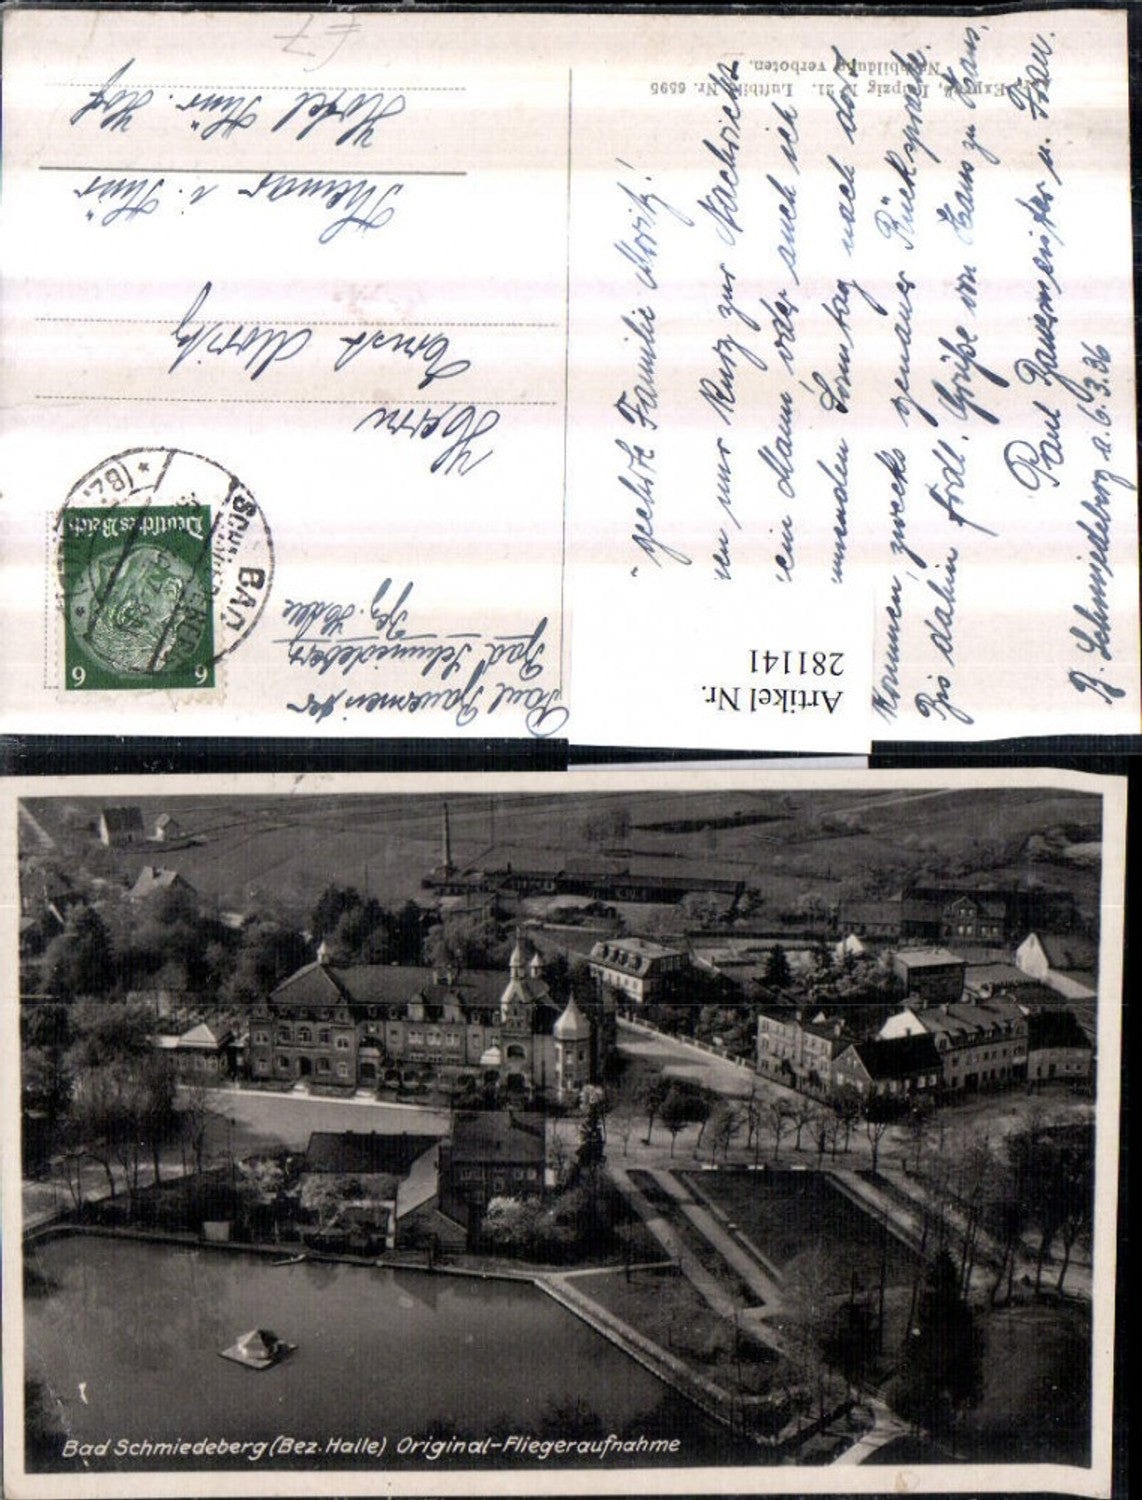 Paul Bauermeister
Bad Schmiedeberg
Bez. Halle
Deutsches Reich
6 6
BAD
Herrn
Ernst Moritz
Themar i. Thür
Hotel Thür. Hof
Leipzig N 21. Luftbild Nr. 6595
Nachbildung verboten.
geehrte Familie Moritz!
nur kurz zur Nachricht
Mann oder auch ich
Sonntag nach dort
kommen zwecks genauer Rücksprache.
Bis dahin frdl. Grüße von Haus zu Haus.
Paul Bauermeister u. Frau
B. Schmiedeberg d. 6.3.36
Artikel Nr.
281141
Bad Schmiedeberg (Bez. Halle) Original-Fliegeraufnahme